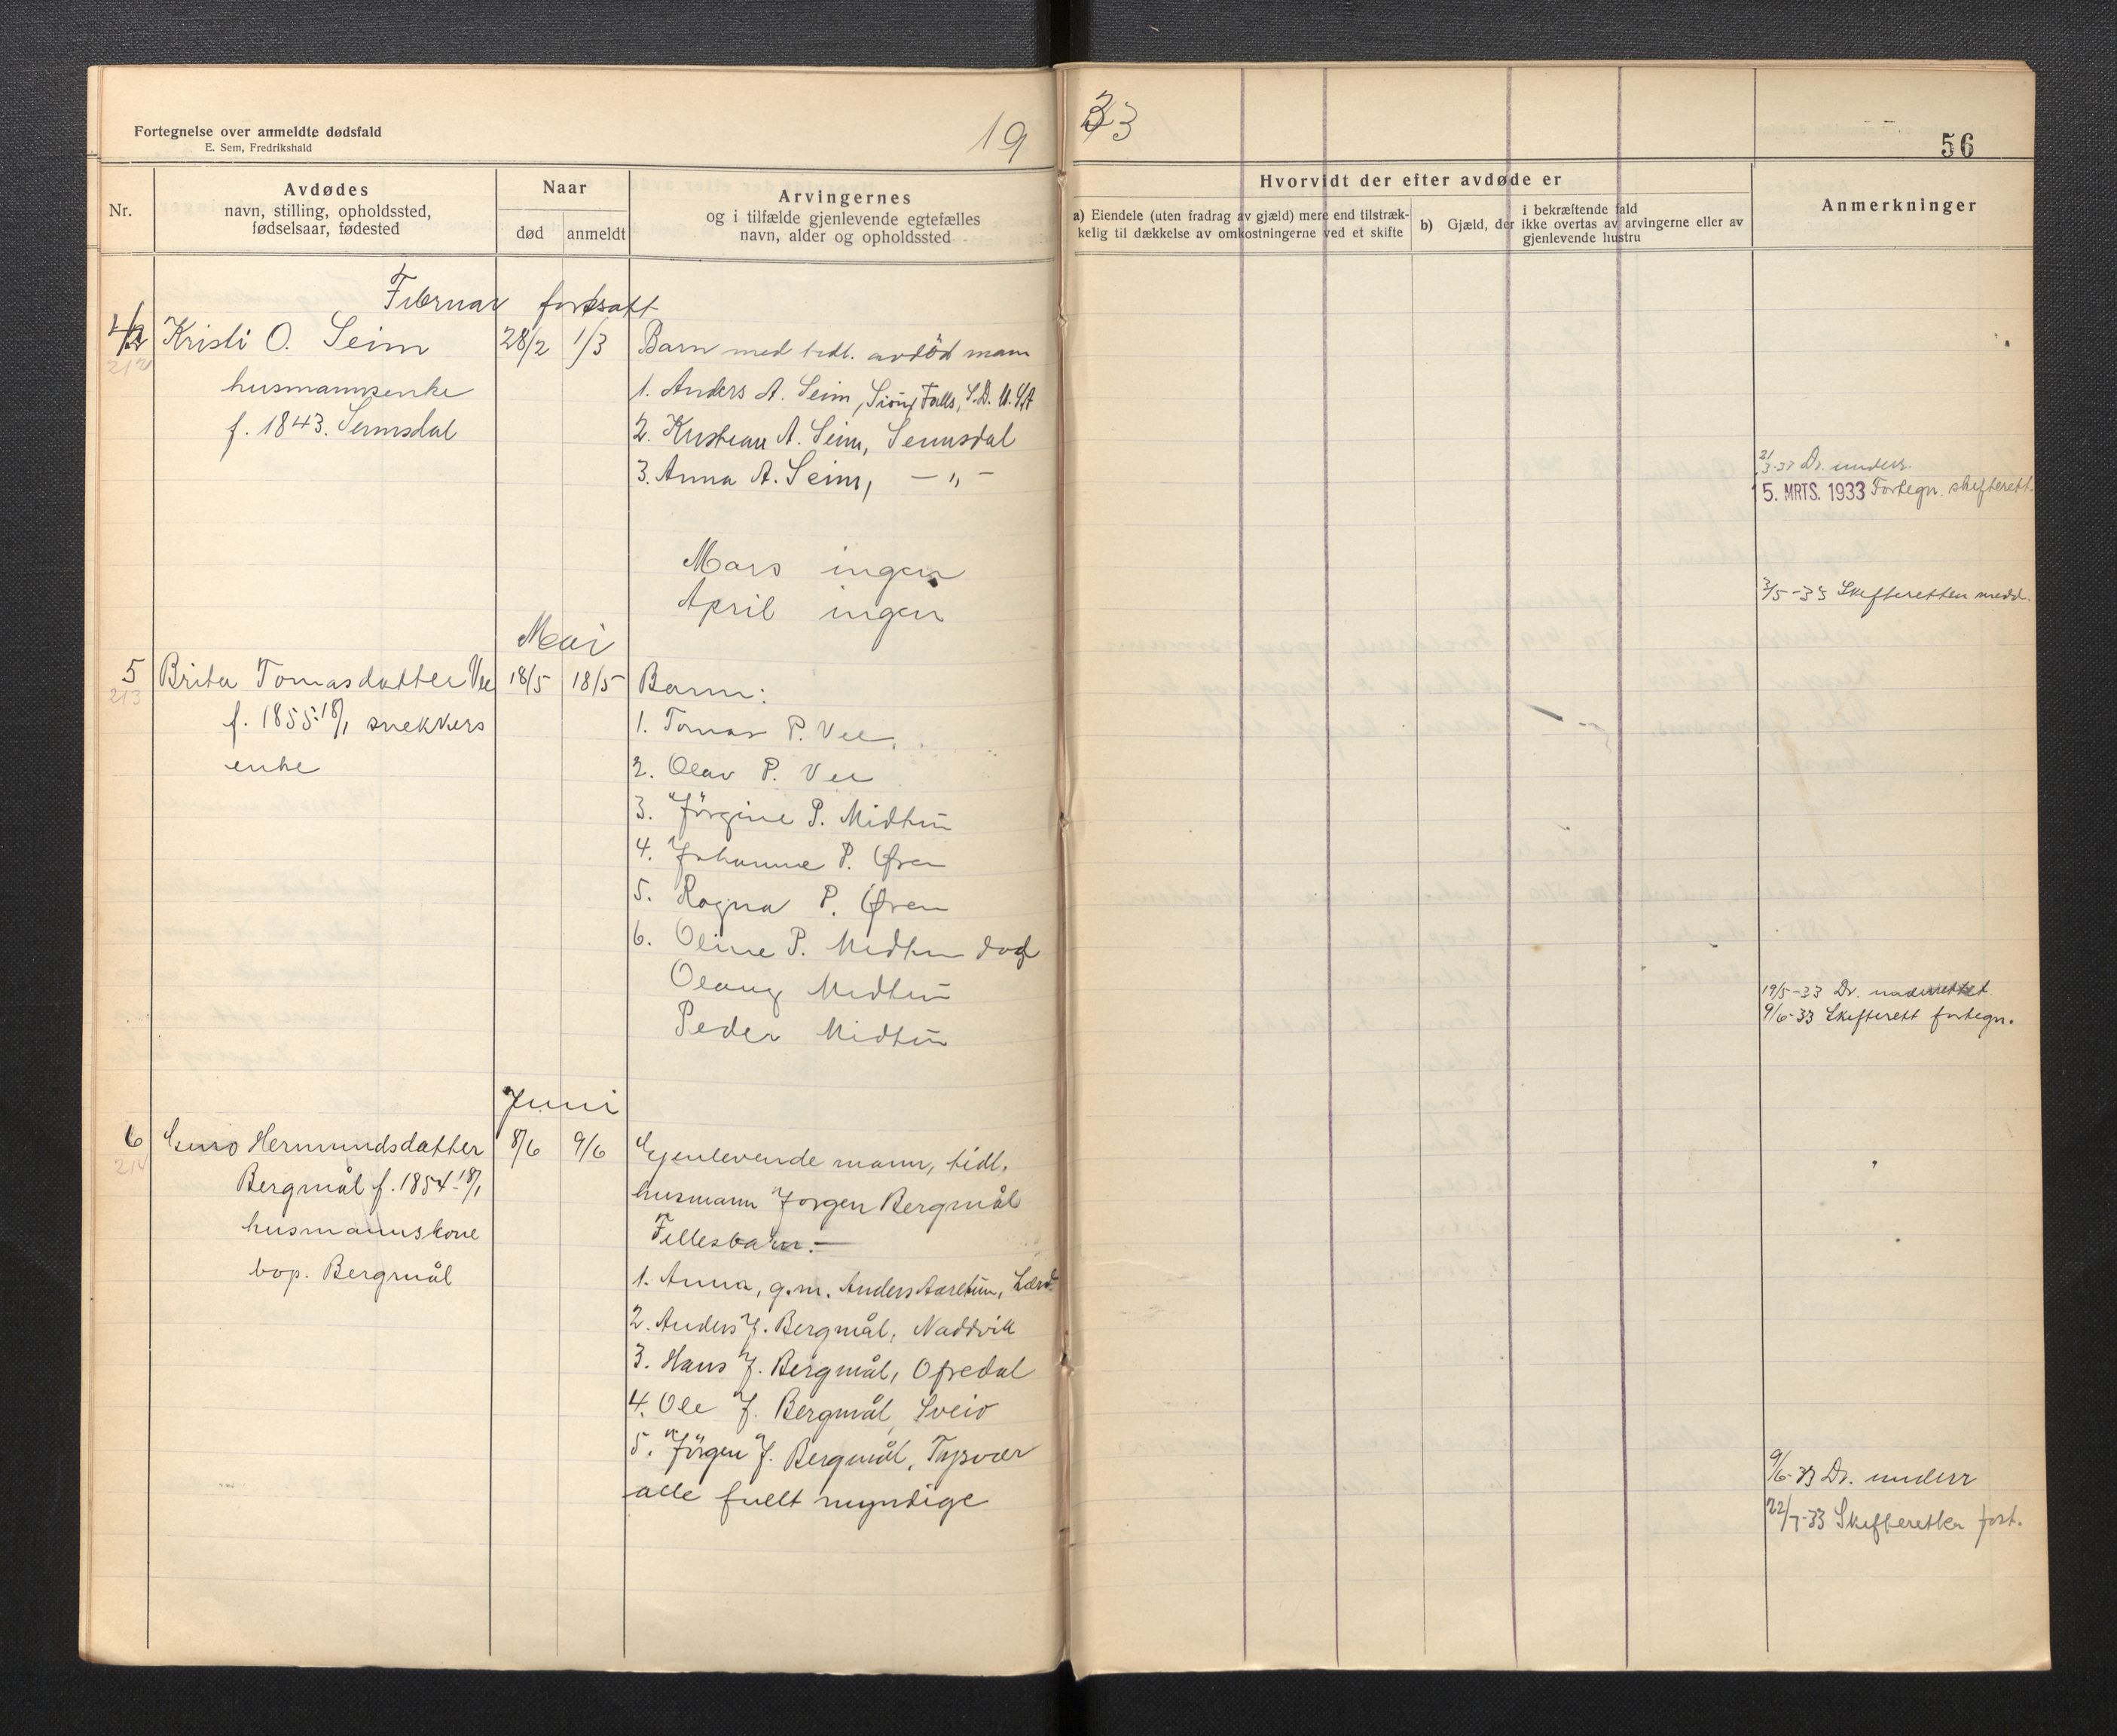 Fortegnelse over anmeldte dødsfald
E. Sem, Fredrikshald
19
33
56
Nr.
Avdødes
navn, stilling, opholdssted,
fødselsaar, fødested
Naar
død
anmeldt
Arvingernes
og i tilfælde gjenlevende egtefælles
navn, alder og opholdssted
Hvorvidt der efter avdøde er
a) Eiendele (uten fradrag av gjæld) mere end tilstræk-
kelig til dækkelse av omkostningerne ved et skifte
b) Gjæld, der i bekræftende fald
ikke overtas av arvingerne eller av
gjenlevende hustru
Anmerkninger
Februar fortsatt
4 Kristi O. Seim 28/2 1/3 Barn med tidl. avdød mann
212
husmannsenke
f. 1843. Seimsdal
1. Anders A. Seim, Sioux Falls, S.D. U.S.A
2. Kristian A. Seim, Seimsdal
3. Anna A. Seim, — " —
3-33 Dr. underr.
15. MRTS. 1933 Fortegn. skifterett.
Mars ingen
April ingen
3/5-33 Skifteretten medd.
Mai
5 Brita Tomasdatter Vee 18/5 18/5 Barn:
213
f. 1855 18/1 snekkers
enke
1. Tomas P. Vee
2. Olav P. Vee
3. Jörgine P. Midtun
4. Johanne P. Øren
5. Ragna P. Øren
6. Oline P. Midtun død
Olaug Midtun
Peder Midtun
19/5-33 Dr. underrettet
9/6-33 Skifterett fortegn.
Juni
6 Hermundsdatter 8/6 9/6 Gjenlevende mann, tidl.
214
Bergmål f. 1854-18/1
husmannskone
bop. Bergmål
husmann Jørgen Bergmål
Fellesbarn:—
1. Anna, g.m. Anders Aaretun, Lærd.
2. Anders J. Bergmål, Naddvik
3. Hans J. Bergmål, Ofredal
4. Ole J. Bergmål, Sveio
5. Jörgen J. Bergmål, Tysvær
alle fullt myndige
9/6-33 Dr. underr
22/7-33 Skifteretten fort.